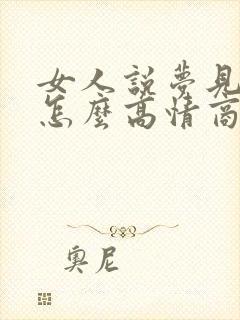 女人說夢見
怎麼高情商
奧尼